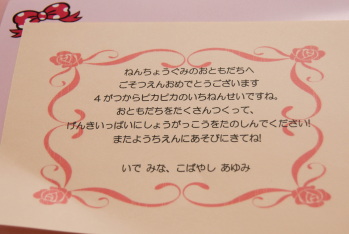 ねんちょうぐみのおともだちへ
ごそつえんおめでとうございます
4がつからピカピカのいちねんせいですね。
おともだちをたくさんつくって、
げんきいっぱいにしょうがっこうをたのしんでください!
またようちえんにあそびにきてね!
いで みな、こばやし あゆみ